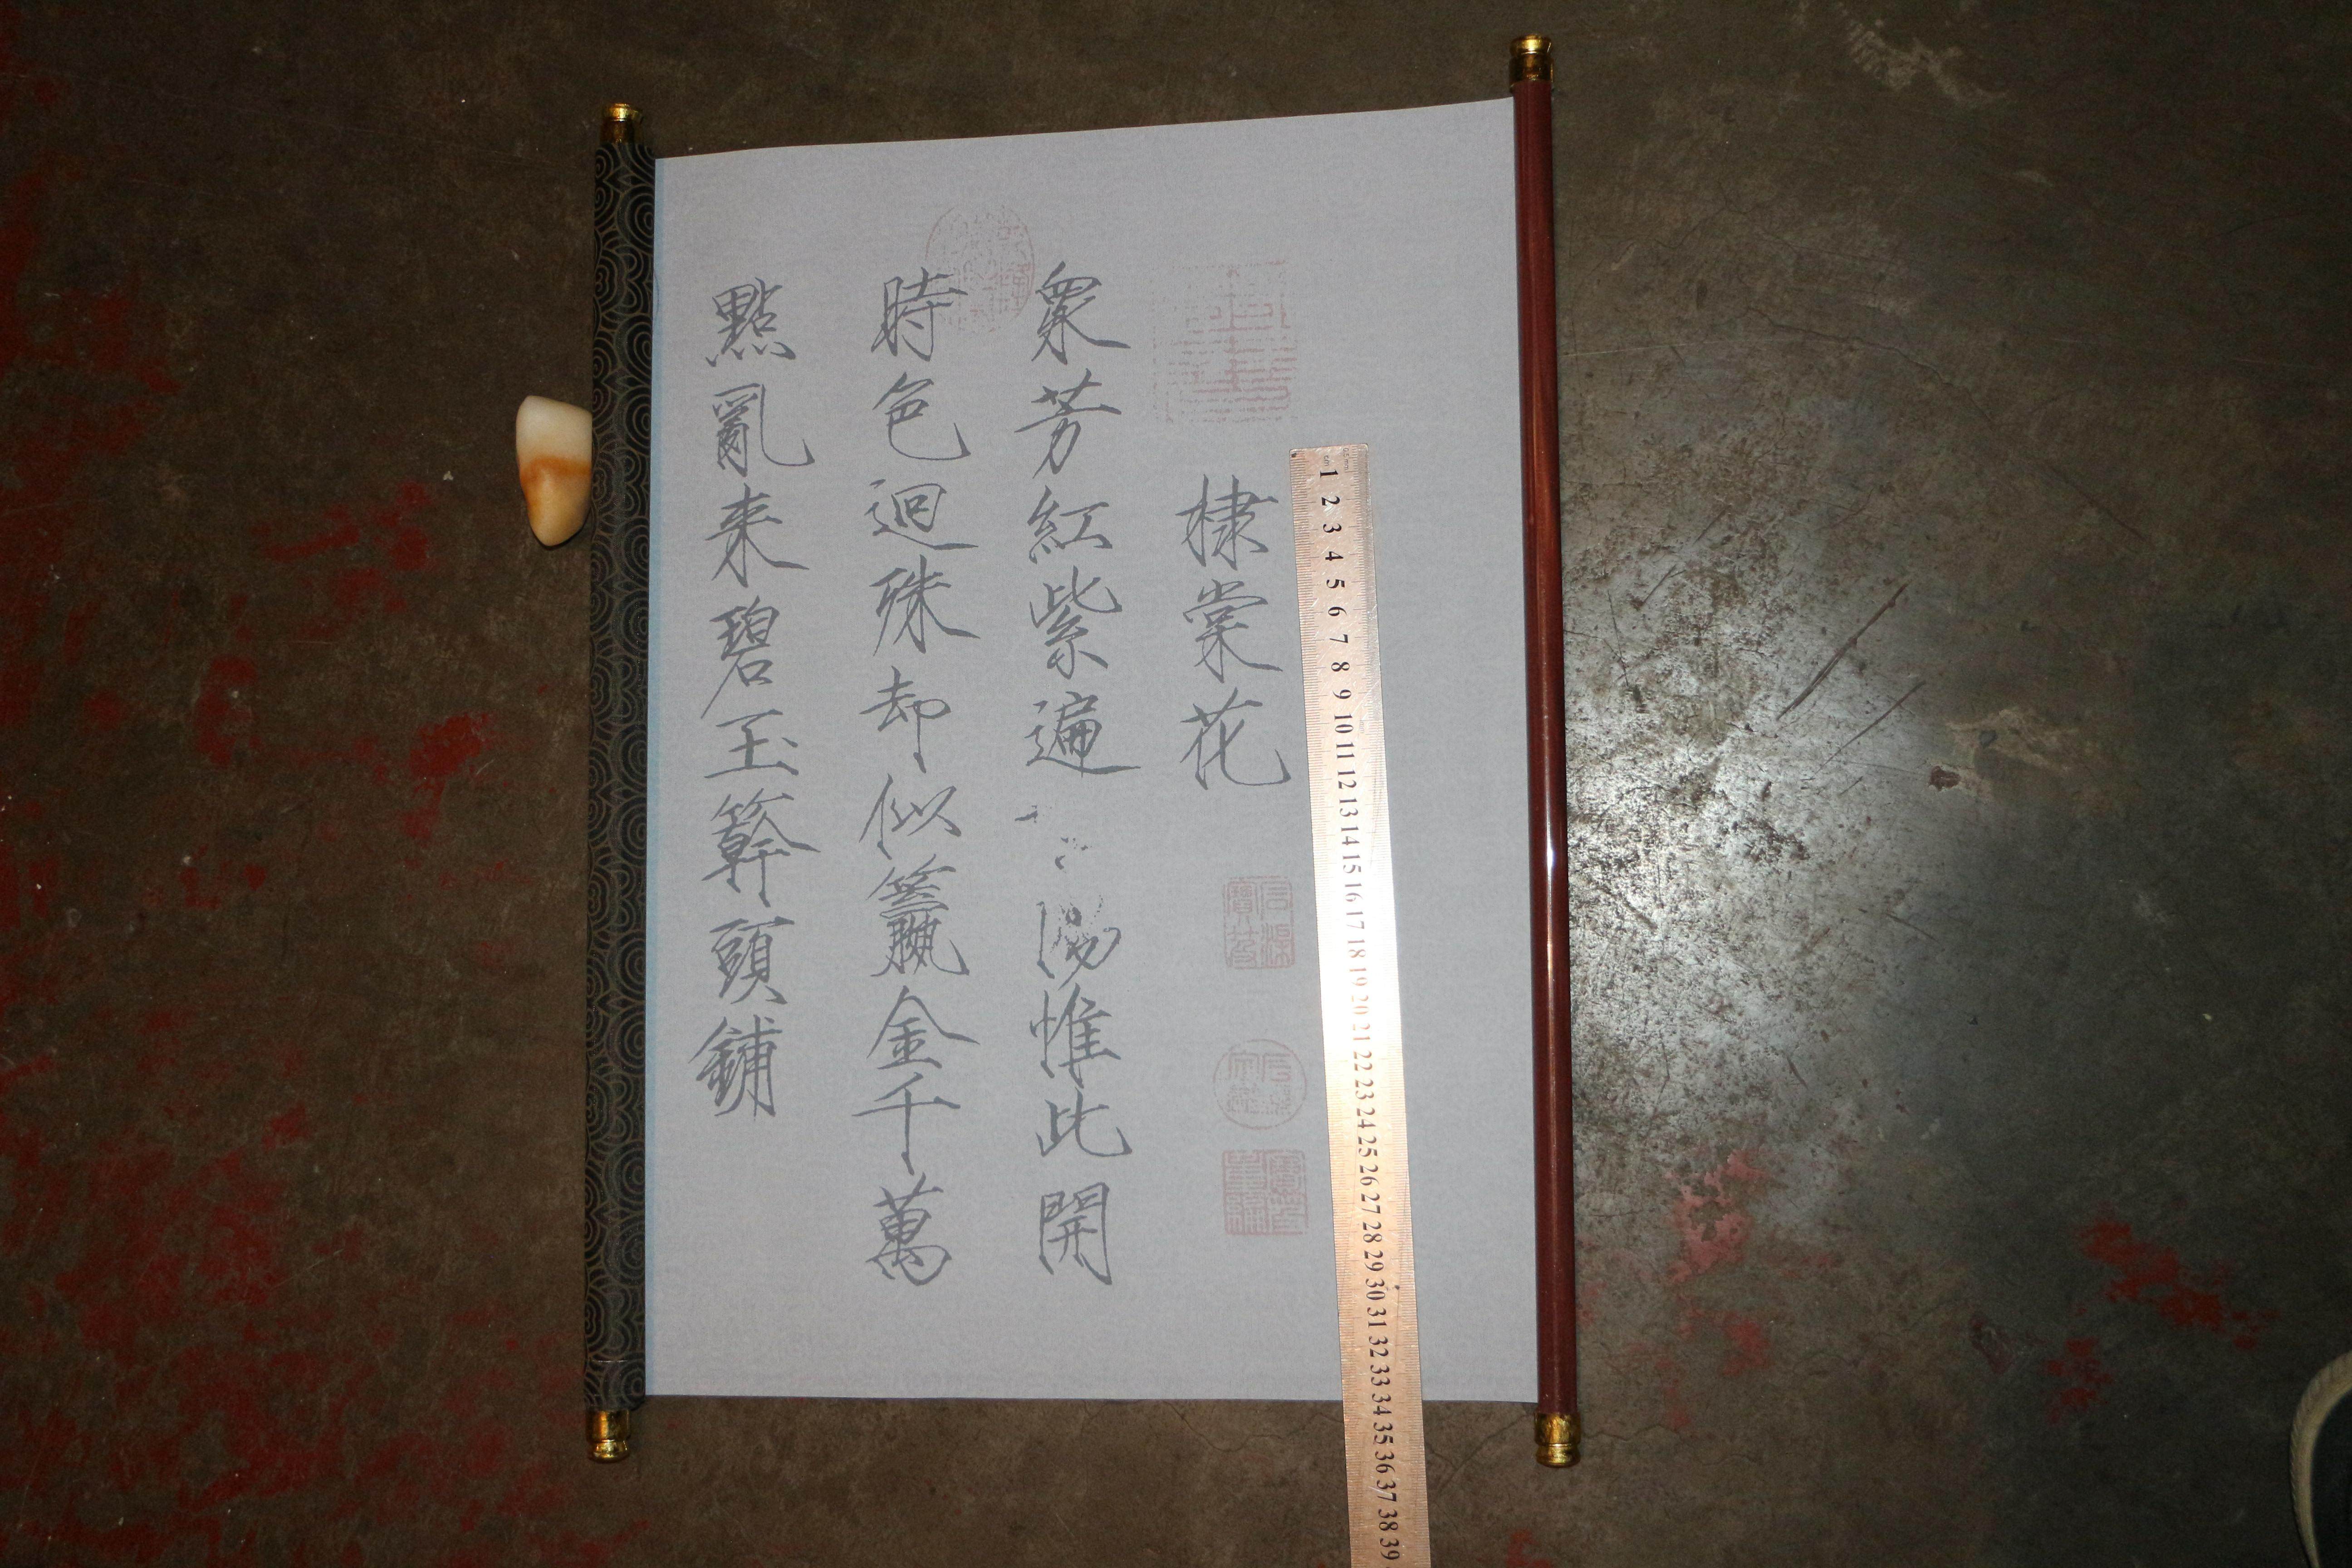 棣棠花
衆芳紅紫遍
陽惟此開
時色迥殊却似籯金千萬
點亂来碧玉簳頭鋪
1 2 3 4 5 6 7 8 9 10 11 12 13 14 15 16 17 18 19 20 21 22 23 24 25 26 27 28 29 30 31 32 33 34 35 36 37 38 39